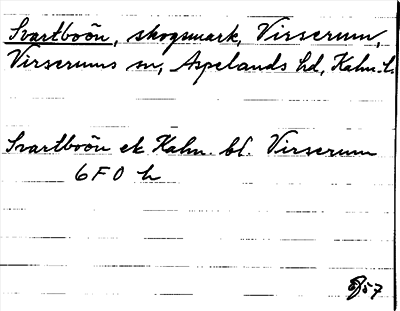 Svartboön, skogsmark, Virserum,
Virserums sn, Aspelands hd, Kalm. l.
Svartboön ek Kalm. bl. Virserum
6F0 h
57